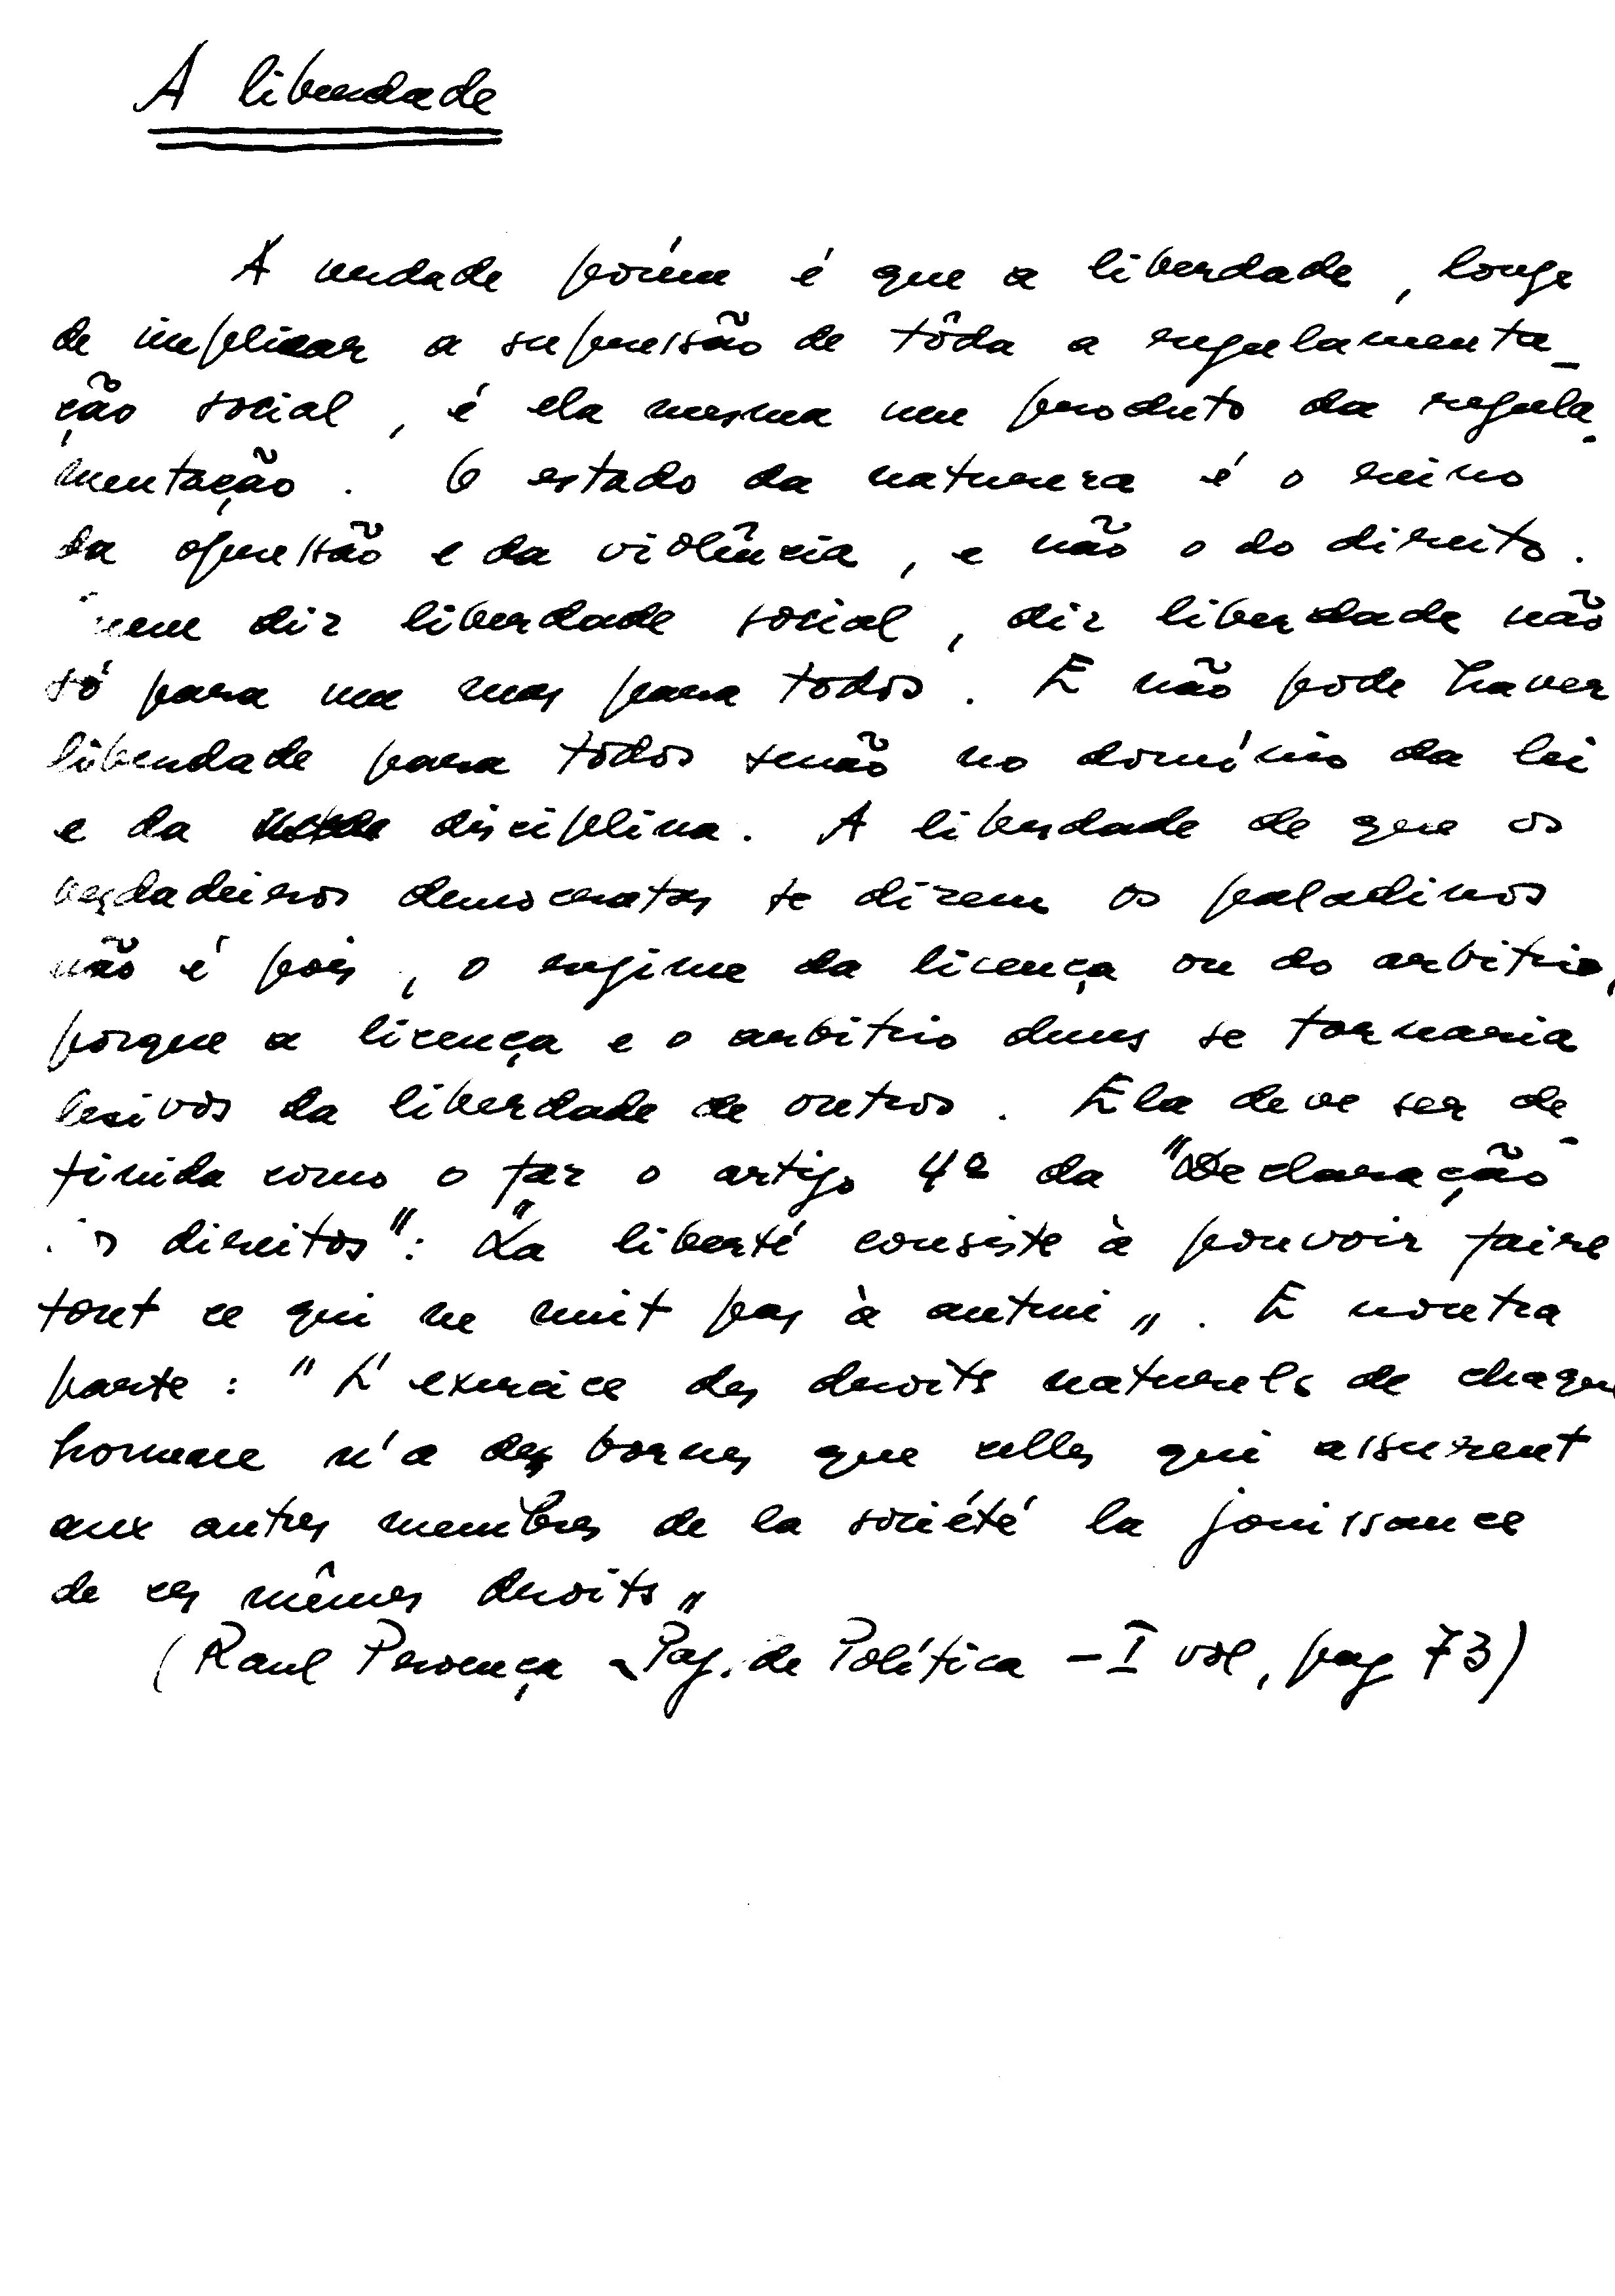 A liberdade
A verdade porém é que a liberdade, longe
de implicar a supressão de tôda a regulamenta-
ção social, é ela mesma um produto da regula-
mentação. O estado da natureza é o reino
da opressão e da violência, e não o do direito.
Quem diz liberdade social, diz liberdade não
só para um mas para todos. E não pode haver
liberdade para todos senão no domínio da lei
e da disciplina. A liberdade de que os
verdadeiros democratas se dizem os paladinos
não é pois, o regime da licença ou do arbitrio,
porque a licença e o arbitrio duns se tornaria
lesivos da liberdade de outros. Ela deve ser de-
finida como o faz o artigo 4º da "Declaração
dos direitos": "La liberté consiste à pouvoir faire
tout ce qui ne nuit pas à autrui". E noutra
parte: "L'exercice des droits naturels de chaque
homme n'a des bornes que celles qui assurent
aux autres membres de la société la jouissance
de ces mêmes droits"
(Raul Proença - Pag. de Política - I vol, pag 73)